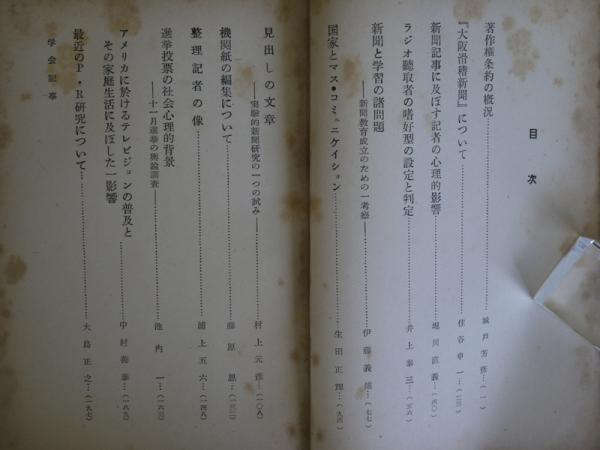 目次
著作権条約の概況…………城戸芳彦…(一)
『大阪滑稽新聞』について…………住谷申一…(二四)
新聞記事に及ぼす記者の心理的影響…………堀川直義…(四〇)
ラジオ聽取者の嗜好型の設定と判定…………井上泰三…(五六)
新聞と学習の諸問題
――新聞教育成立のための一考察――…………伊藤義雄…(七七)
国家とマス・コミュニケイション…………生田正輝…(九四)
見出しの文章
――実驗的新聞研究の一つの試み――…………村上元彦…(一〇八)
機関紙の編集について…………藤原恩…(一三一)
整理記者の像…………浦上五六…(一四八)
選挙投票の社会心理的背景
――十一月選挙の輿論調査――…………池内一…(一六三)
アメリカに於けるテレビジョンの普及と
その家庭生活に及ぼした一影響…………中村善泰…(一八九)
最近のP・R研究について…………大島正之…(一九七)
学会記事